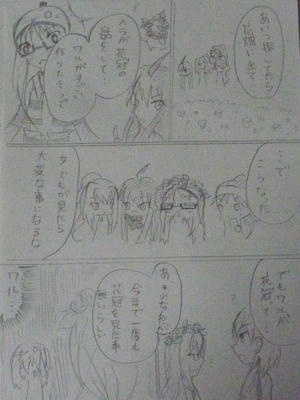 あいつ探してたら
花畑に出て、
ヘラが花冠の
話をして…
ワルがすごい
作りたそうで
…で
こうなった
女どもが見たら
大変な事になるな
でもワルが
花冠て…
あ、
今まで一度も
花冠を見た事
無いらしい
ワル…